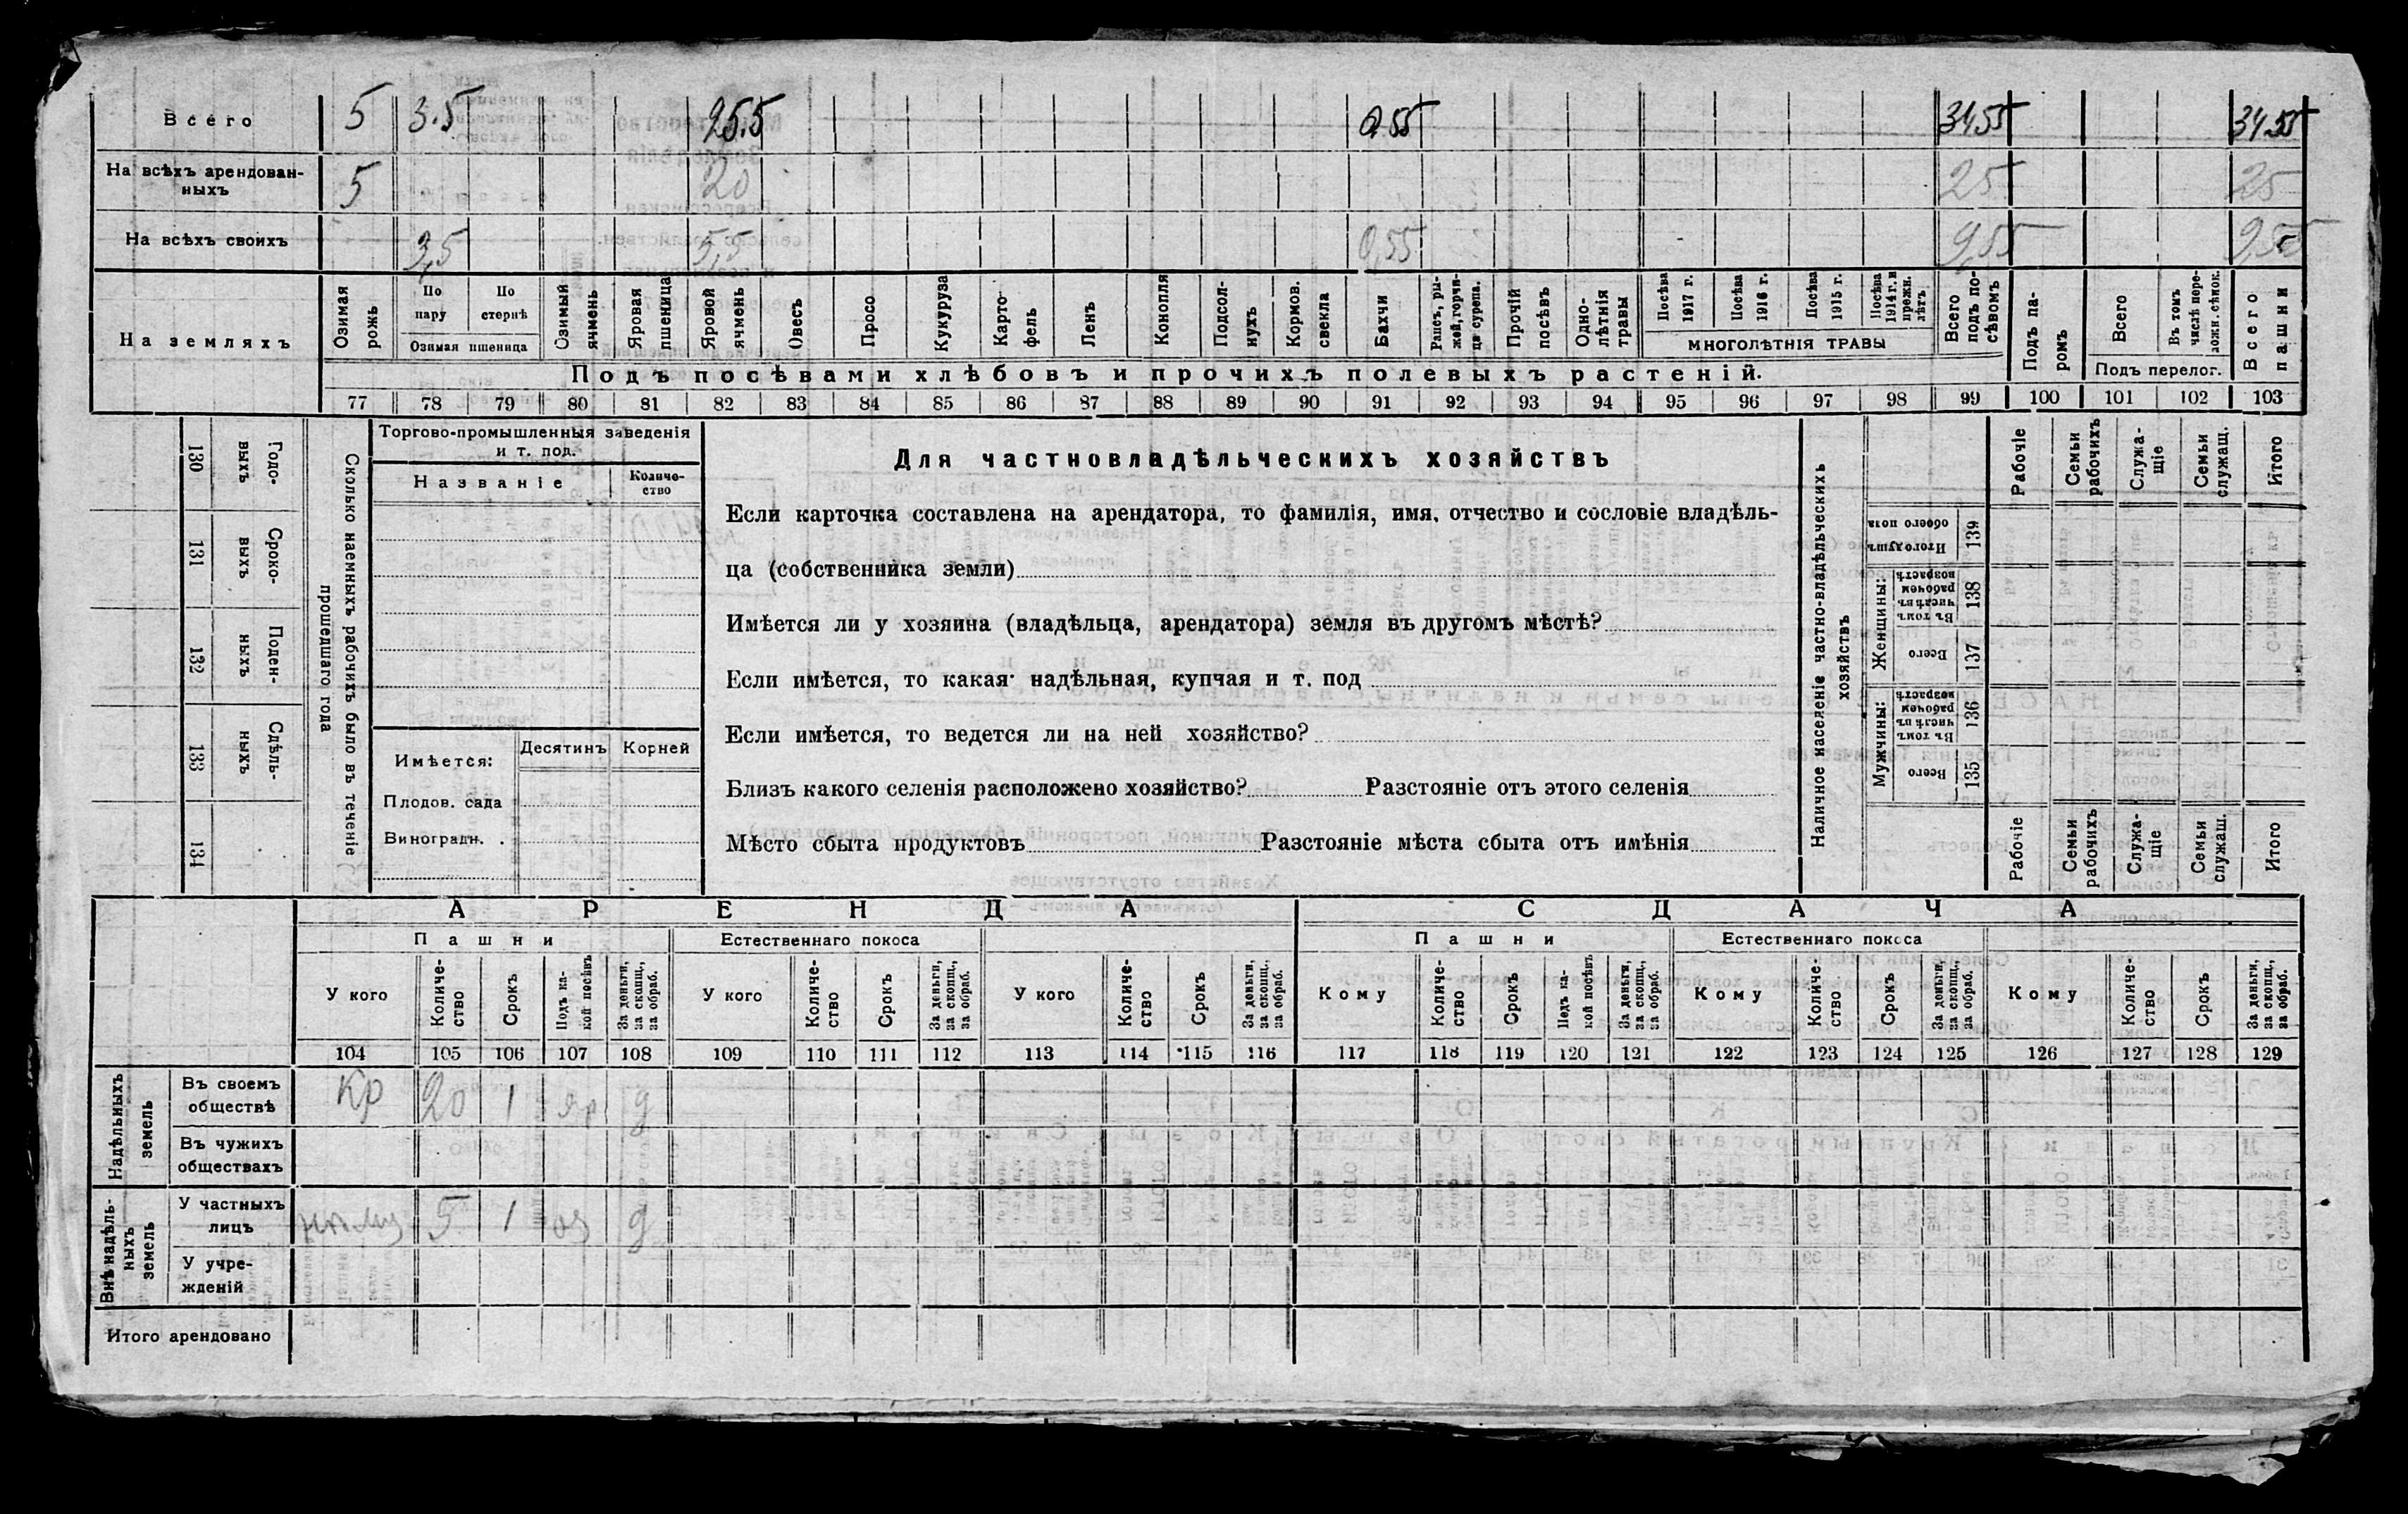 Всего 5 3.5 25.5 0.55 34.55 34.55
На всѣхъ арендован-
ныхъ 5 20 25 25
На всѣхъ своихъ 3,5 5,5 0,55 9,55 9,55
На земляхъ
Озимая рожь
По пару
По стернѣ
Озимая пшеница
Озимый ячмень
Яровая пшеница
Яровой ячмень
Овесъ
Просо
Кукуруза
Карто-
фель
Ленъ
Конопля
Подсол-
нухъ
Кормов. свекла
Бахчи
Рапсъ, ры-
жей, горчи-
ца сурепа.
Прочій посѣвъ
Одно-
лѣтнія травы
Посѣва 1917 г.
Посѣва 1916 г.
Посѣва 1915 г.
Посѣва 1914 г. и прежн. лѣтъ
МНОГОЛѢТНІЯ ТРАВЫ
Всего подъ по-
сѣвомъ
Подъ па-
ромъ
Всего
Въ томъ числѣ пере-
ложн. сѣнок.
Подъ перелог.
Всего пашни
Подъ посѣвами хлѣбовъ и прочихъ полевыхъ растеній.
77 78 79 80 81 82 83 84 85 86 87 88 89 90 91 92 93 94 95 96 97 98 99 100 101 102 103
130 Годо-
выхъ
131 Сроко-
выхъ
132 Поден-
ныхъ
133 Сдѣль-
ныхъ
134
Сколько наемныхъ рабочихъ было въ теченіе
прошедшаго года
Торгово-промышленныя заведенія
и т. под.
Названіе
Количе-
ство
Имѣется:
Десятинъ
Корней
Плодов. сада
Виноградн. .
Для частновладѣльческихъ хозяйствъ
Если карточка составлена на арендатора, то фамилія, имя, отчество и сословіе владѣль-
ца (собственника земли)
Имѣется ли у хозяина (владѣльца, арендатора) земля въ другомъ мѣстѣ?
Если имѣется, то какая· надѣльная, купчая и т. под
Если имѣется, то ведется ли на ней хозяйство?
Близъ какого селенія расположено хозяйство? Разстояніе отъ этого селенія
Мѣсто сбыта продуктовъ Разстояніе мѣста сбыта отъ имѣнія
Наличное населеніе частно-владѣльческихъ
хозяйствъ
Рабочіе
Семьи рабочихъ
Служа-
щіе
Семьи служащ.
Итого
Итого душъ обоего пола 139
Женщины:
Въ томъ числѣ въ рабочемъ возрастѣ 138
Всего 137
Мужчины:
Въ томъ числѣ въ рабочем возрастѣ 136
Всего 135
Рабочіе
Семьи рабочихъ
Служа-
щіе
Семьи служащ.
Итого
АРЕНДА СДАЧА
Пашни Естественнаго покоса Пашни Естественнаго покоса
У кого
Количе-
ство
Срокъ
Подъ ка-
кой посѣвъ
За деньги, за скопщ., за обраб.
У кого
Количе-
ство
Срокъ
За деньги, за скопщ., за обраб.
У кого
Количе-
ство
Срокъ
За деньги, за скопщ., за обраб.
Кому
Количе-
ство
Срокъ
Подъ ка-
кой посѣвъ
За деньги, за скопщ., за обраб.
Кому
Количе-
ство
Срокъ
За деньги, за скопщ., за обраб.
Кому
Количе-
ство
Срокъ
За деньги, за скопщ., за обраб.
104 105 106 107 108 109 110 111 112 113 114 115 116 117 118 119 120 121 122 123 124 125 126 127 128 129
Надѣльныхъ
земель
Въ своемъ
обществѣ Кр 20 1 яр д
Въ чужихъ
обществахъ
Внѣ надѣль-
ныхъ
земель
У частныхъ
лицъ 5 1 оз д
У учре-
жденій
Итого арендовано